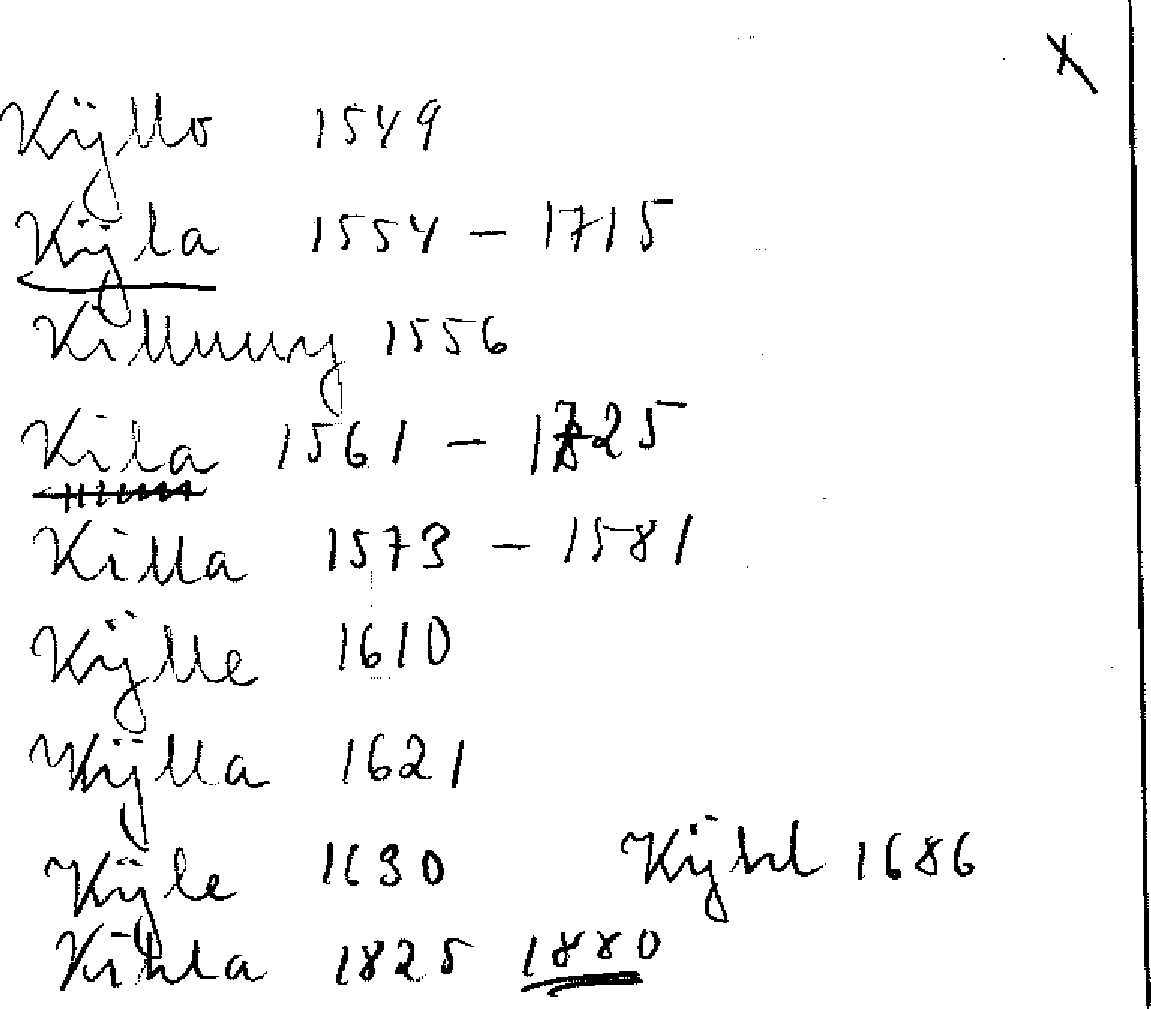 Kÿllo 1549
Kÿla 1554 – 1715
1556
Kila 1561 – 1725
Killa 1573 – 1581
Kÿlle 1610
Kÿlla 1621
Kÿle 1630 Kÿhl 1686
Kihla 1825 1880